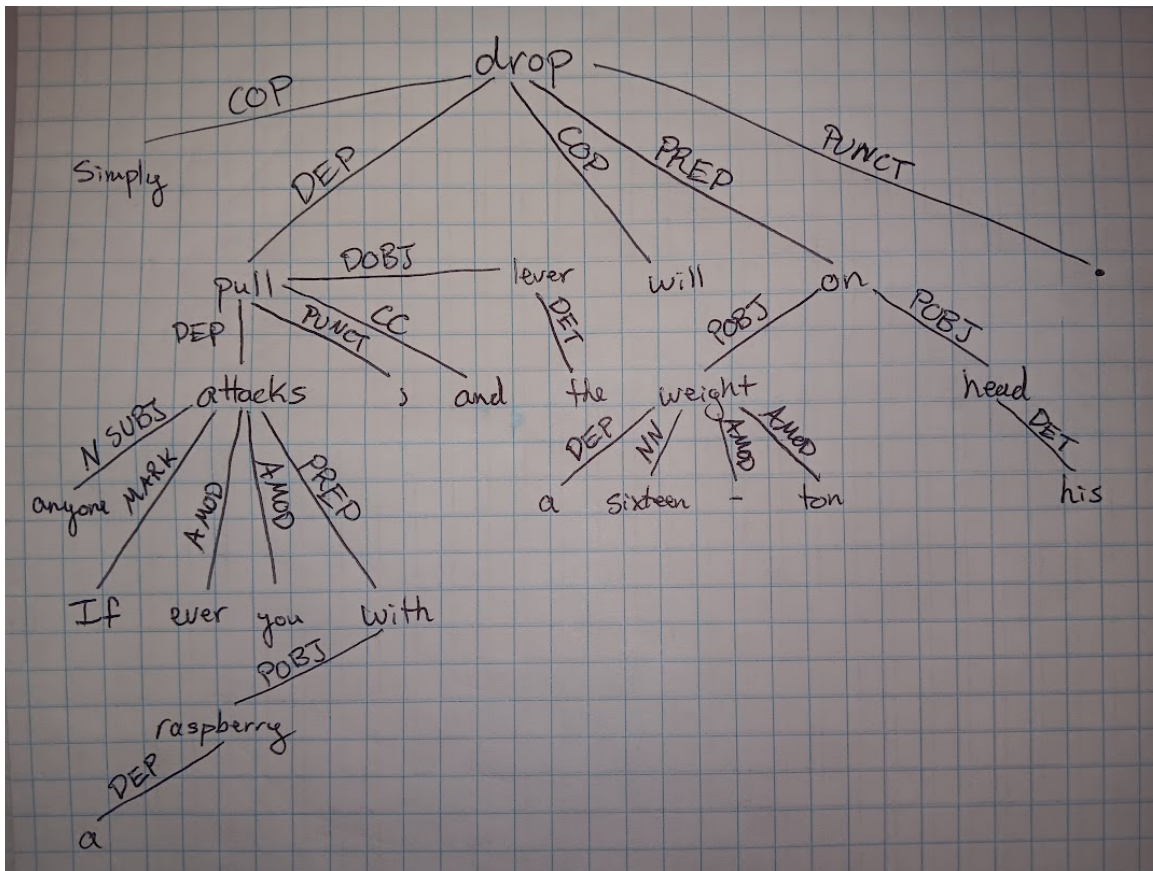 drop
COP
DEP
COP
PREP
PUNCT
Simply
pull
DOBJ
lever
will
on
.
DEP
PUNCT
CC
DET
POBJ
POBJ
attacks
,
and
the
weight
head
N SUBJ
MARK
AMOD
AMOD
PREP
DEP
NN
AMOD
AMOD
DET
anyone
a
sixteen
-
ton
his
If
ever
you
with
POBJ
raspberry
DEP
a